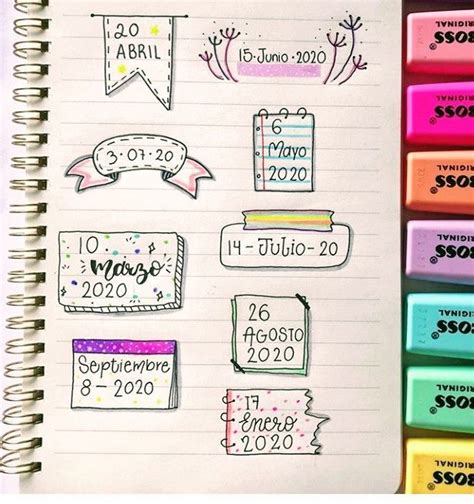 20
ABRIL
15·Junio·2020
3·07·20
6
Mayo
2020
10
Marzo
2020
14-Julio-20
26
AGOSTO
2020
Septiembre
8-2020
17
Enero
2020
BOSS
ORIGINAL
BOSS
ORIGINAL
BOSS
ORIGINAL
BOSS
ORIGINAL
BOSS
ORIGINAL
BOSS
ORIGINAL
BOSS
ORIGINAL